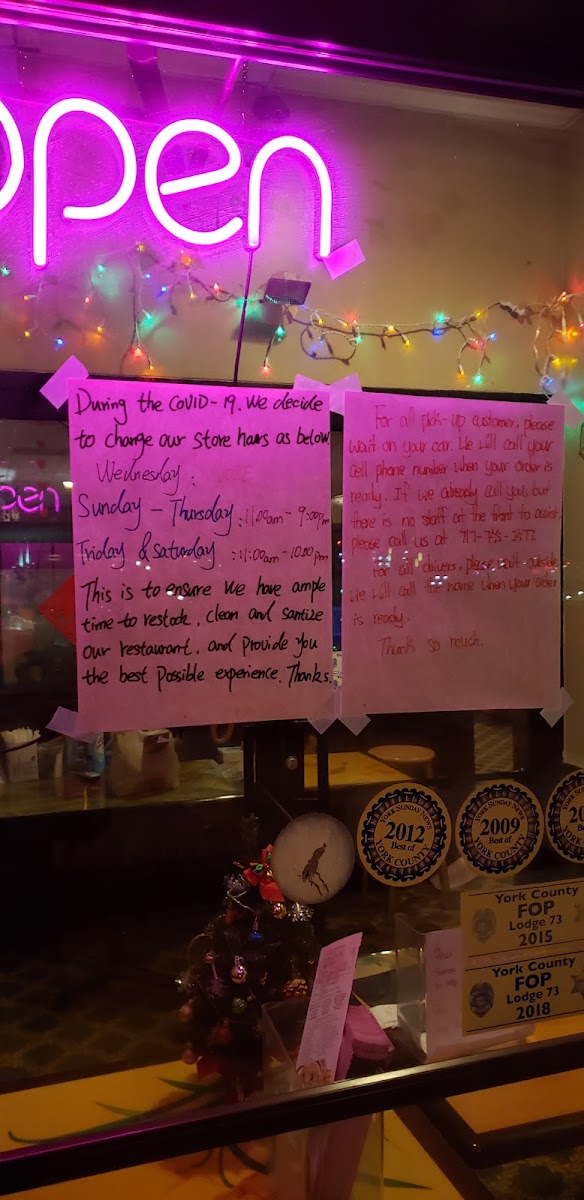 open
During the COVID-19. We decide
to change our store hours as below
Wednesday :
Sunday - Thursday : 11:00am - 9:00pm
Friday & Saturday : 11:00am - 10:00pm
This is to ensure we have ample
time to restock, clean and santize
our restaurant, and provide you
the best possible experience. Thanks.
For all pick-up customer, please
wait on your car. We will call your
cell phone number when your order is
ready. If we already call you, but
there is no staff at the front to assist,
please call us at
For all drivers, please wait outside
We will call the name when your order
is ready.
Thank so much.
open
YORK SUNDAY NEWS
2012
Best of
YORK COUNTY
YORK SUNDAY NEWS
2009
Best of
YORK COUNTY
York County
FOP
Lodge 73
2015
York County
FOP
Lodge 73
2018